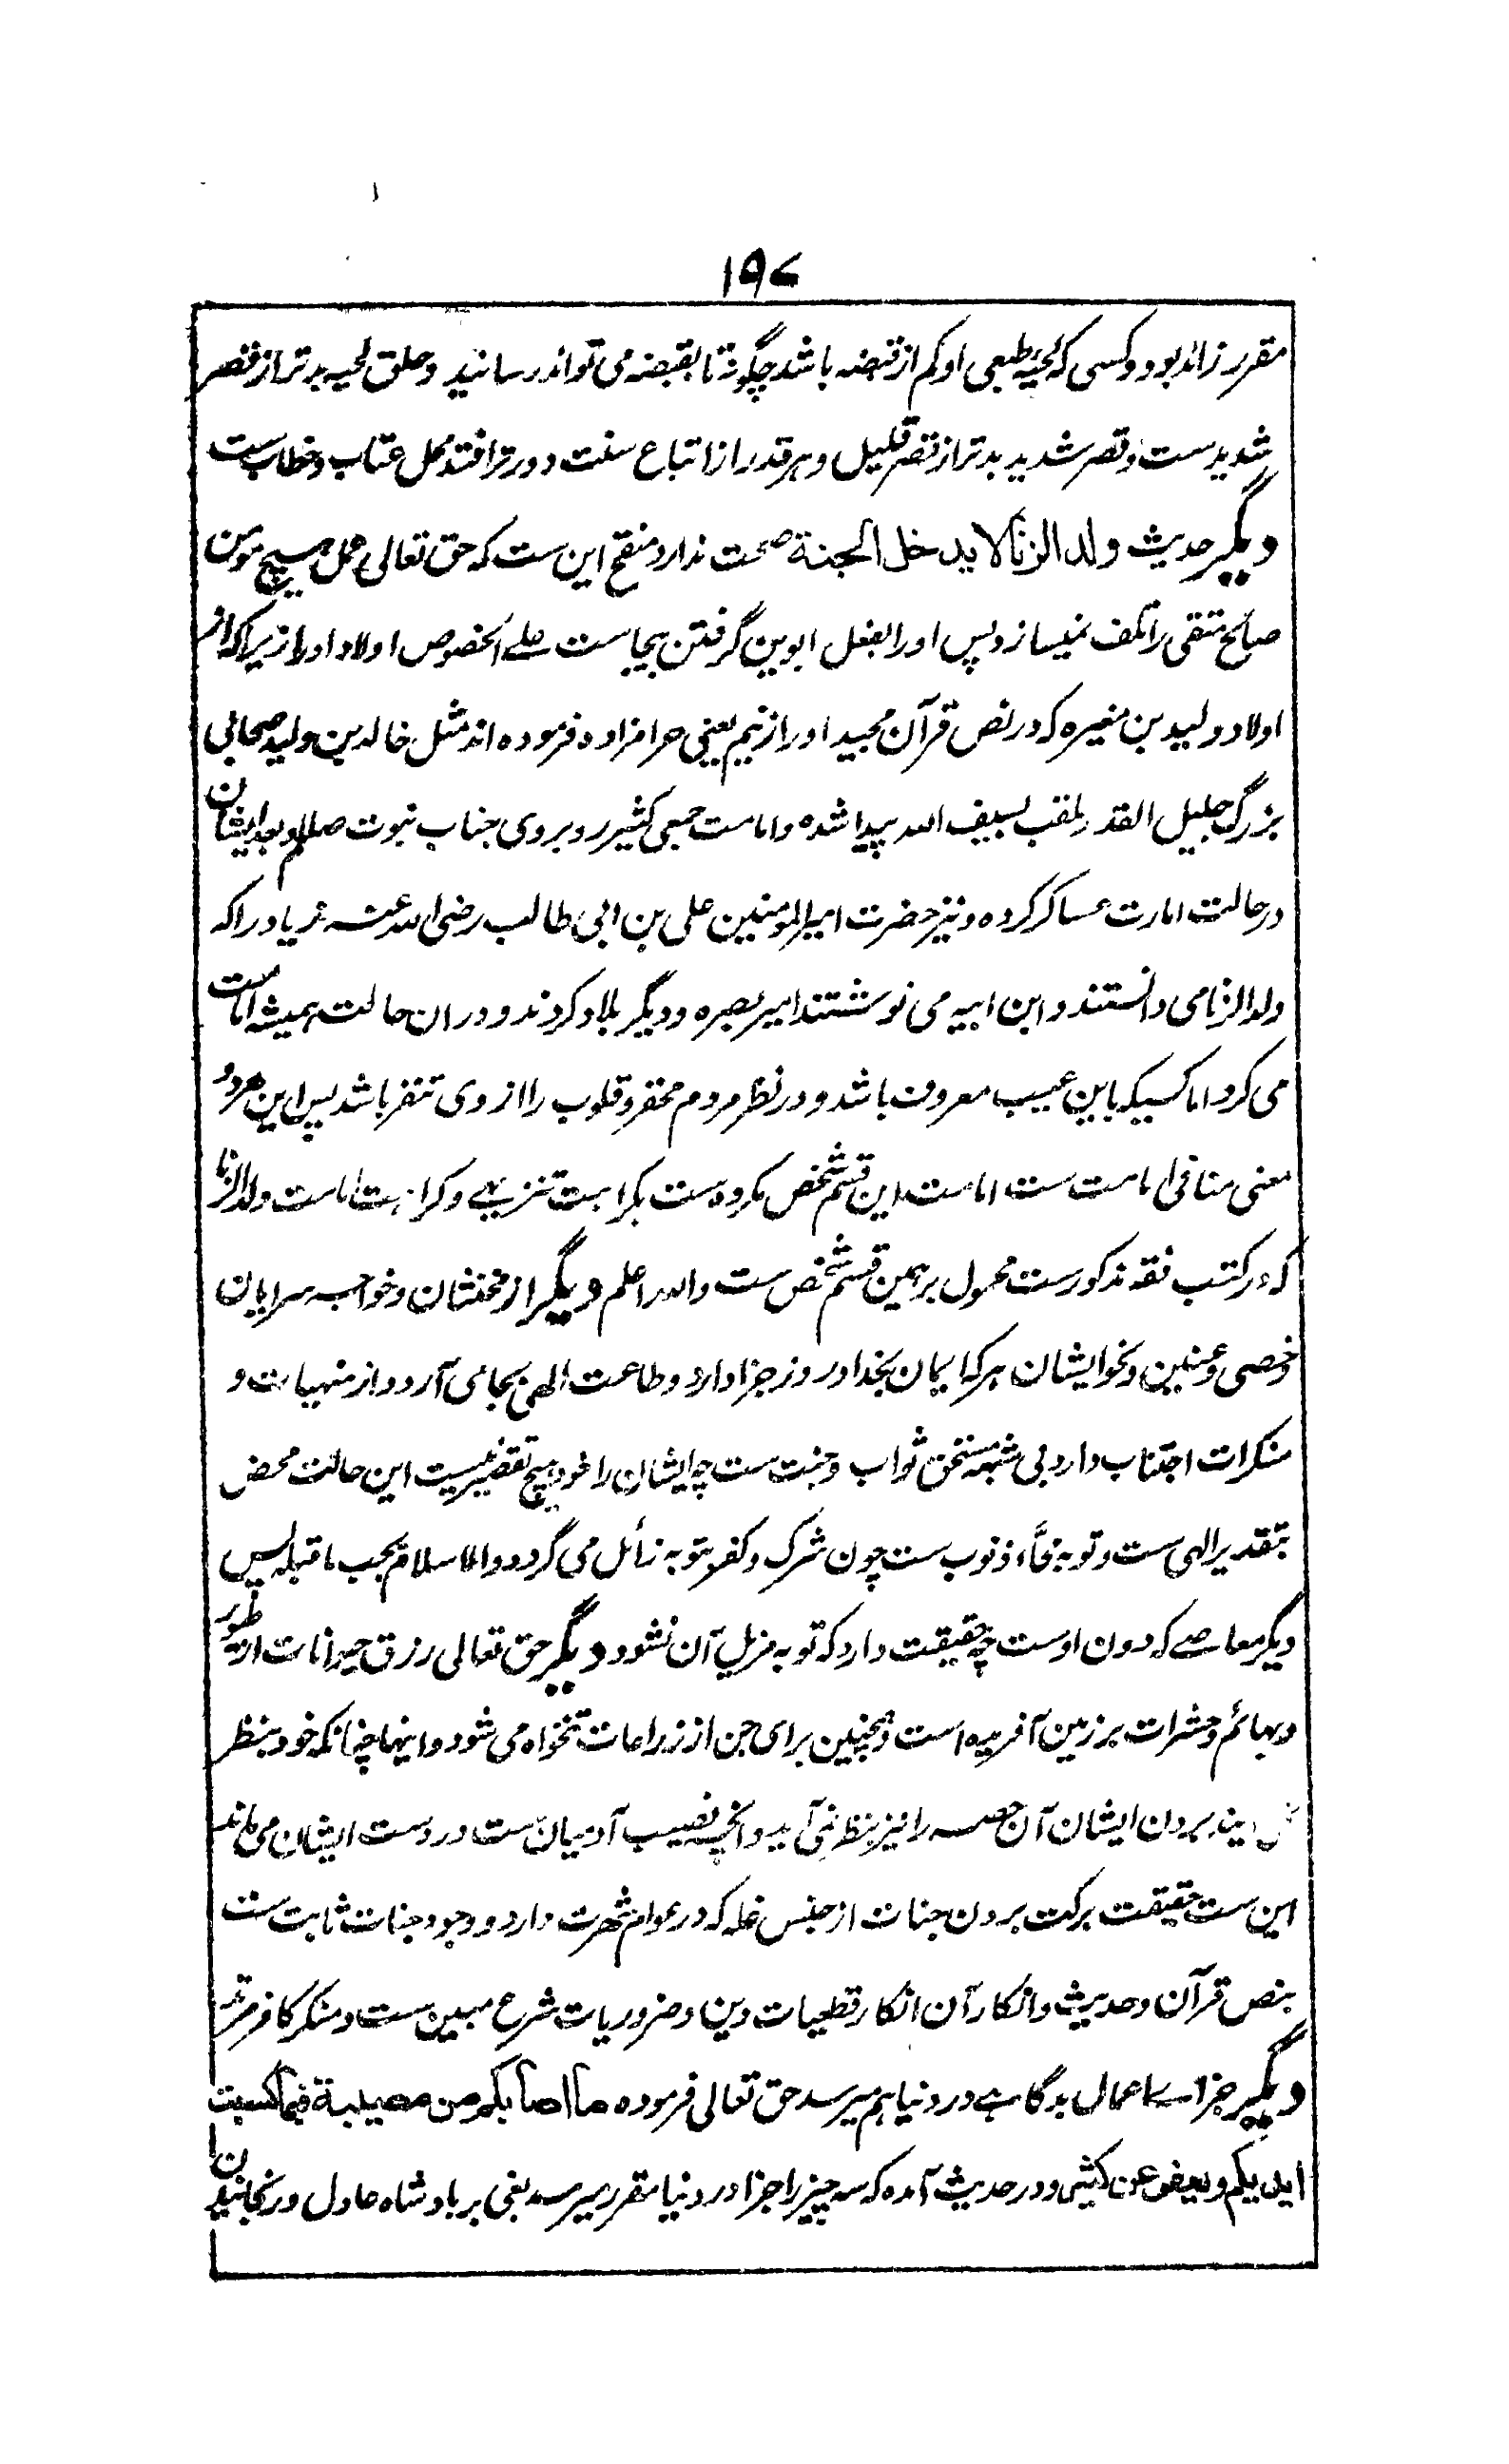 ۱۹۷
مقرر زائد بود و کسی که لحیه طبعی او کم از قبضه باشد چگونه تا بقبضه می تواند رسانید و حلق لحیه بدتر از قصر
شدیدست و قصر شدید بدتر از قصر قلیل و هر قدر از اتباع سنت دورتر افتد محل عتاب و خطاب ست
دیگر حدیث ولد الزنا لا یدخل الجنة صحت ندارد منقح این ست که حق تعالی عمل هیچ مومن
صالح متقی را تلف نمیسازد پس او را بفعل ابوین گرفتن بیجاست علے الخصوص اولاد او را زیراکه از
اولاد ولید بن مغیره که در نص قرآن مجید او را زنیم یعنی حرامزاده فرموده اند مثل خالد بن ولید صحابی
بزرگ جلیل القدر ملقب بسیف الله پیدا شده و امامت جمعی کثیر روبروی جناب نبوت صللم و بعد ایشان
در حالت امارت عساکر کرده و نیز حضرت امیر المومنین علی بن ابی طالب رضی الله عنه زیاد را که
ولد الزنا می دانستند و ابن ابیه می نوشتند امیر بصره و دیگر بلاد کردند و در ان حالت همیشه امامت
می کرد اما کسیکه باین عیب معروف باشد و در نظر مردم محقر و قلوب را از وی تنفر باشد پس این هر دو
معنی منافی امامت ست امامت این قسم شخص مکروه ست بکراهت تنزیهے و کراهت امامت ولد الزنا
که در کتب فقه مذکورست محمول بر همین قسم شخص ست والله اعلم دیگر از مخنثان و خواجه سرایان
و خصی و عنین و نحو ایشان هر که ایمان بخدا و روز جزا دارد و طاعت الهی بجا می آرد و از منهیات و
منکرات اجتناب دارد بی شبهه مستحق ثواب و جنت ست چه ایشان را خود هیچ تقصیر نیست این حالت محض
بتقدیر الهی ست و توبه محاء ذنوب ست چون شرک و کفر بتوبه زائل می گردد والاسلام یجب ما قبله پس
دیگر معاصے که دون اوست چه حقیقت دارد که توبه مزیل آن نشود دیگر حق تعالی رزق حیوانات از طیور
و بهائم و حشرات بر زمین آفریده است و همچنین برای جن از زراعات تنخواه می شود و اینها چنانکه خود بنظر
نمی آیند بردن ایشان آن حصه را نیز بنظر نمی آید و انچه نصیب آدمیان ست در دست ایشان می ماند
این ست حقیقت برکت بردن جنات از جنس غله که در عوام شهرت دارد و وجود جنات ثابت ست
بنص قرآن و حدیث و انکار آن انکار قطعیات دین و ضروریات شرع مبین ست و منکر کافر مرتد
دیگر جزاے اعمال بد گاہے در دنیا هم میرسد حق تعالی فرموده ما اصابکم من مصیبة فبما کسبت
ایدیکم ویعفو عن کثیر و در حدیث آمده که سه چیز را جزا در دنیا مقرر میرسد بغی بر بادشاه عادل و رنجانیدن